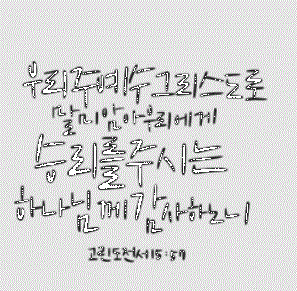 우리 주 예수 그리스도로
말미암아 우리에게
승리를 주시는
하나님께 감사하노니
고린도전서 15:57